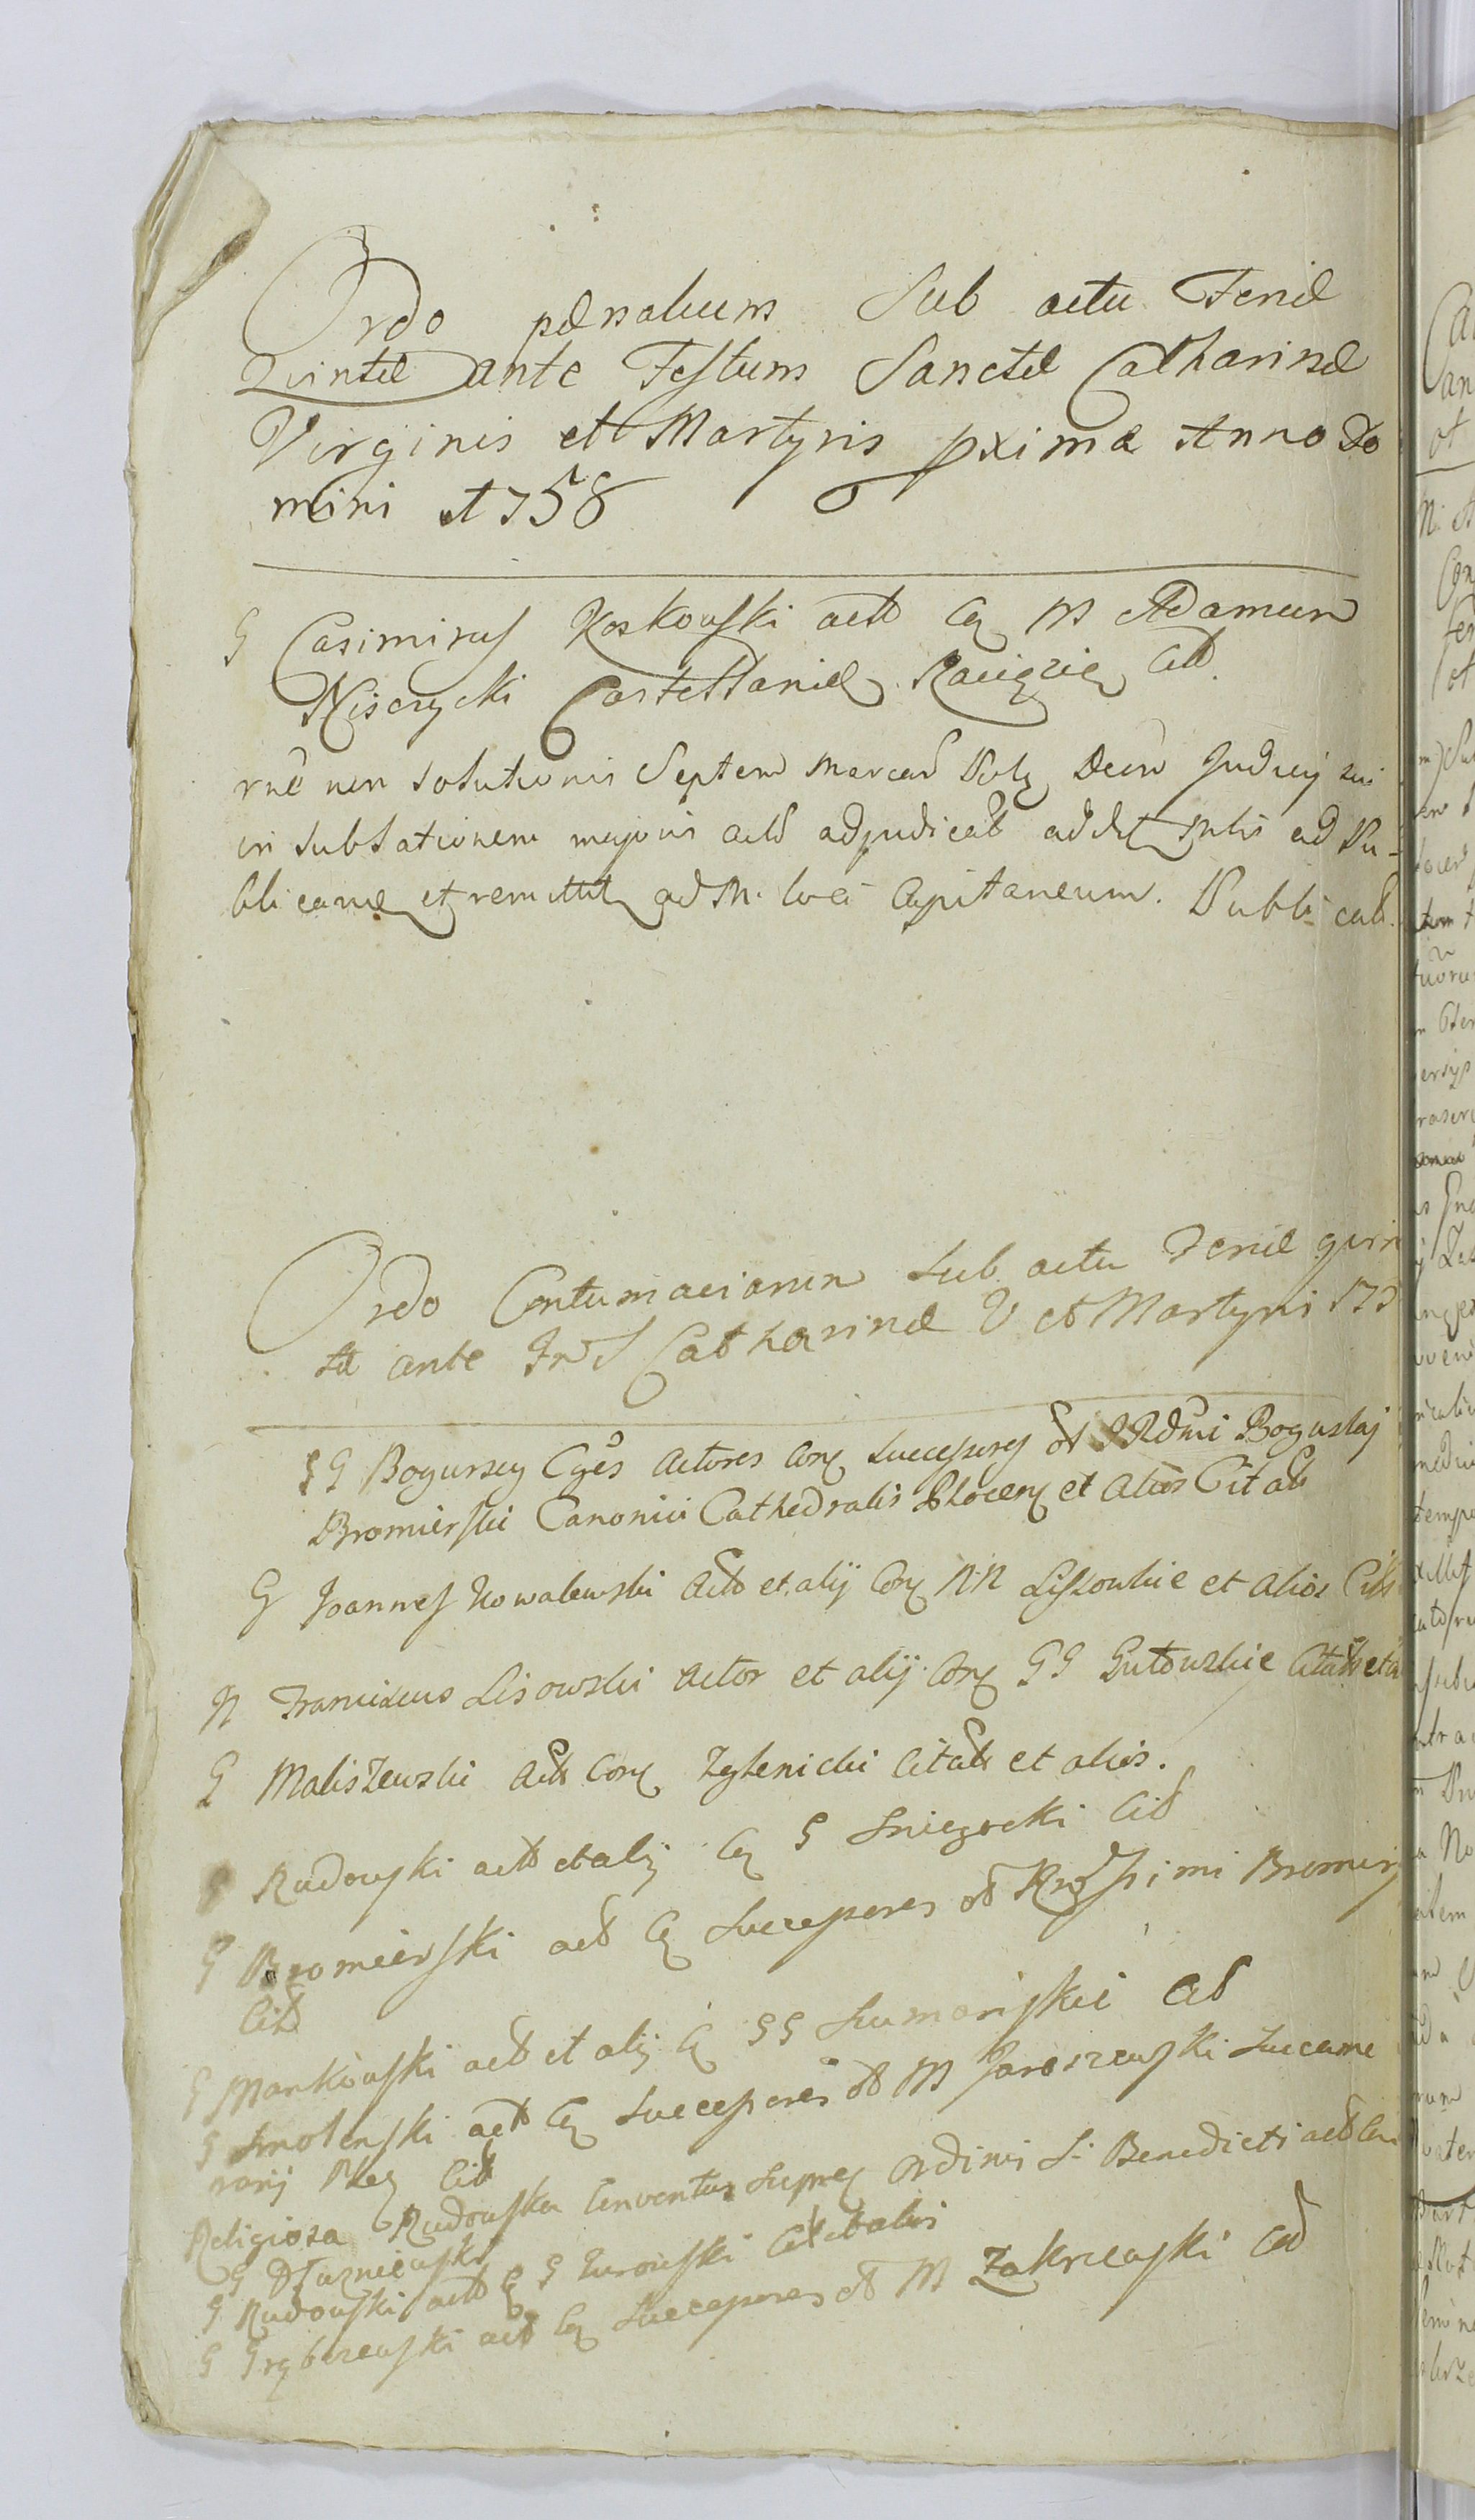 Ordo pænalium Sub actu Feriæ
Quintæ ante Festum Sanctæ Catharinæ
Virginis et Martyris pxima Anno Do
mini 1758
G Casimirus Koskowski act Cq M Adamum
Nisczycki Castellanidę Raciązię Cit.
rne non solutionis Septem Marcas Polq Deen Judicij sui
in subsationem majoris act adjudicat ad Pu-
blicanđ et remittit ad M. loci Capitaneum. Publicat.
Ordo Contumaciarum sub actu Feriæ quin
tæ ante Fes S Catharinæ V et Martyris 175
GG Bogurscy Cges Actores Conq Successores ol RRdmi Boguslaj
Bromierski Canonici Cathedralis Plocenq et alios Citat
G Joannes Kowalewski Act et alij Conq NN Liszowskie et alios Cit
N Franciscus Lisowski Actor et alij Conq GG Gutowskie Citat et a
G Maliszewski Act Conq Zglenicki Citat et alios.
G Rudowski act et alij Cq G Sniegocki Cit
G Bromierski act Cq Successores ol Rndssimi Bromier
Cit
G Markowski act et alij Cq GG Sumoriskie Cit
G Smolenski act Cq Successores ol M Jaroszewski Succame
rarij Plcq Cit
Religiosa Rudowska Conventus Sierpcq Ordinis S. Benedicti act Con
G Dłuzniewski
G Rudowski act Cq G Zurowski Cit et alios
G Grębczewski act Cq Successores ol M Zakrzewski Cit